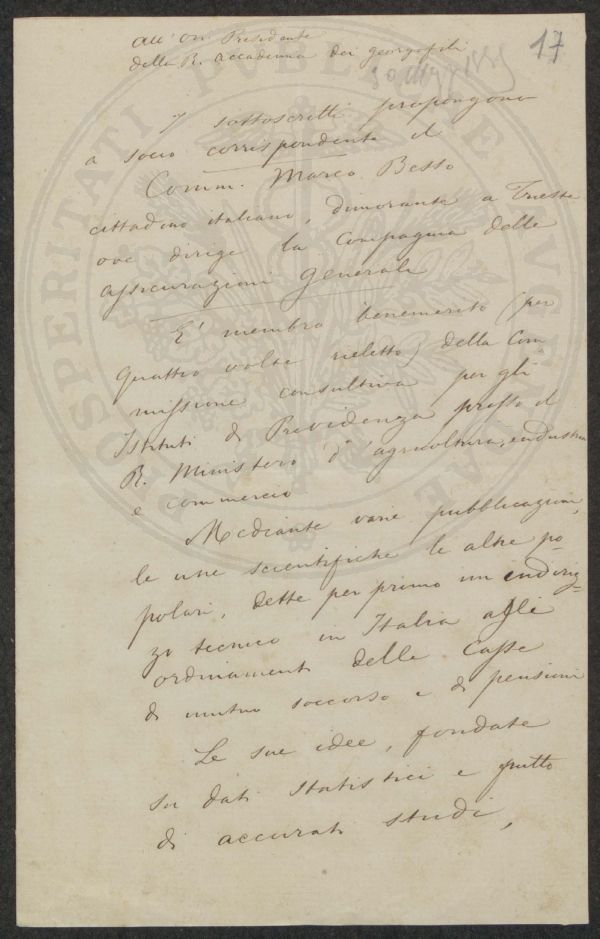 All' On. Presidente
della R. Accademia dei georgofili
17
I sottoscritti propongono
a socio corrispondente il
Comm. Marco Besso
cittadino italiano, dimorante a Trieste
ove dirige la Compagnia delle
assicurazioni Generali
E' membro benemerito (per
quattro volte rieletto) della Com
missione consultiva per gli
Istituti di Previdenza presso il
R. Ministero d'agricoltura, industria
e commercio
Mediante varie pubblicazioni,
le une scientifiche le altre po-
polari, dette per primo un indiriz-
zo tecnico in Italia agli
ordinamenti delle Casse
di mutuo soccorso e di pensioni
Le sue idee, fondate
su dati statistici e frutto
di accurati studi,
PROSPERITATI PUBLICAE